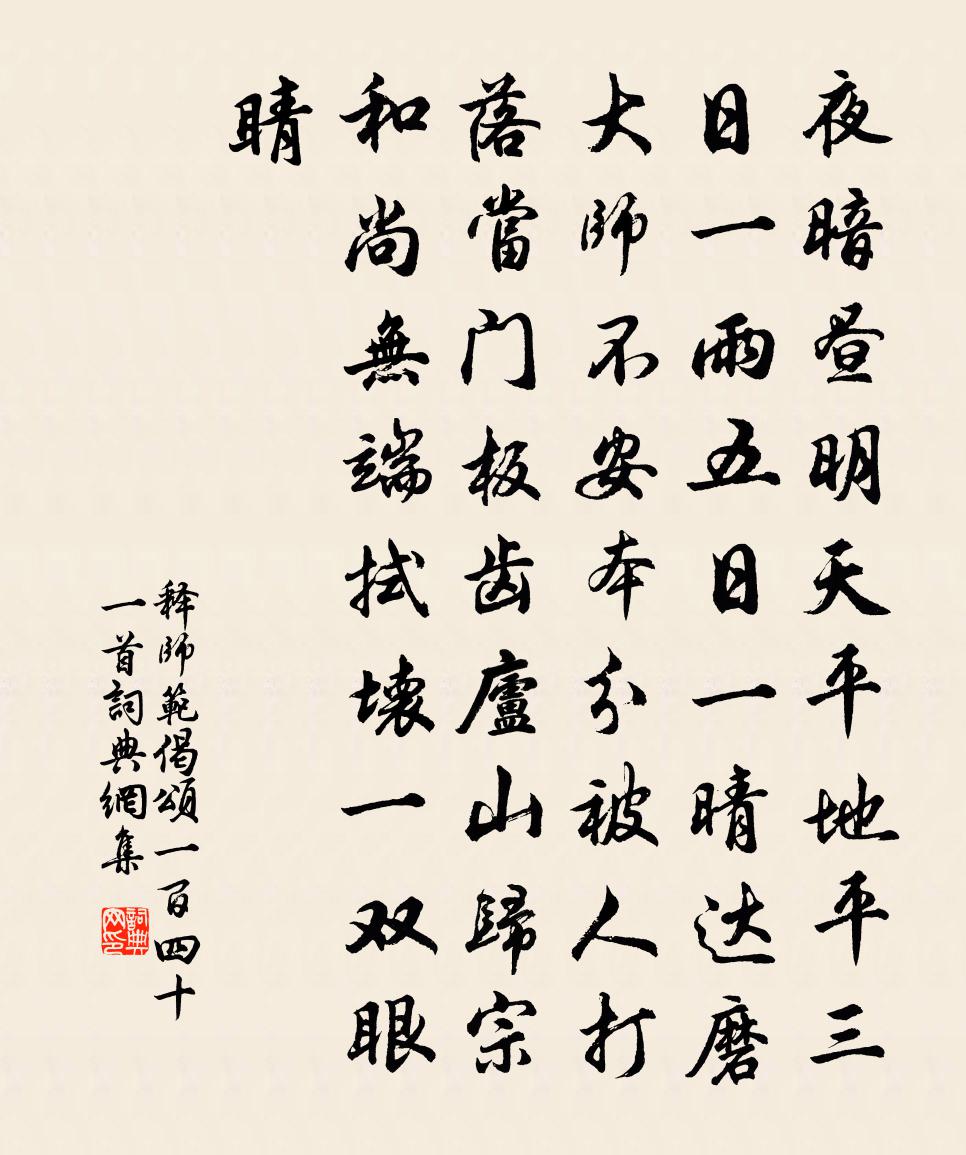 夜暗昼明天平地平三
日一雨五日一晴达磨
大师不安本分被人打
落當门板齿廬山歸宗
和尚無端拭壊一双眼
睛
释师範偈頌一百四十
一首詞典網集
詞典
网印